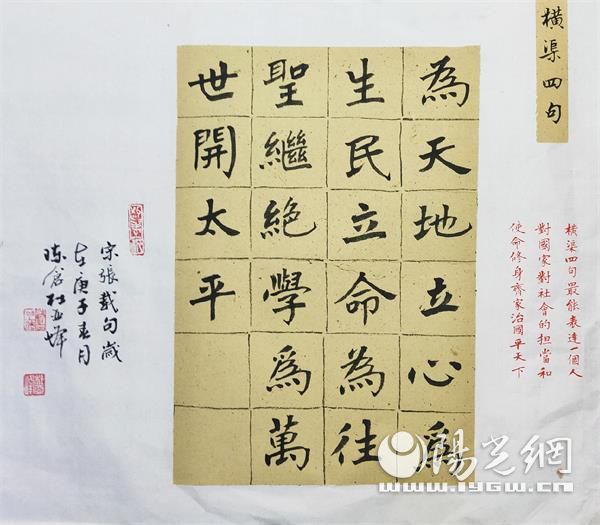 橫渠四句
橫渠四句最能表達一個人
對國家對社會的担當和
使命修身齊家治國平天下
為天地立心爲
生民立命為往
聖繼絶學爲萬
世開太平
宋張載句歲
在庚子春月
陳倉杜亚
陽光網
www.iygw.cn